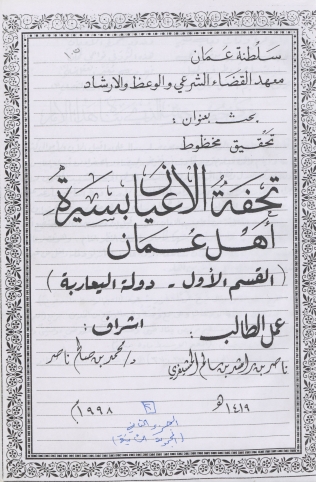 سلطنة عمان
معهد القضاء الشرعي والوعظ والارشاد
بحث بعنوان :
تحقيق مخطوط
تحفة الأعيان بسيرة
أهل عمان
( القسم الأول - دولة اليعاربة )
عمل الطالب : اشراف :
ناصر بن راشد بن سالم د/ محمد بن سالم ناصر
١٤١٩هـ ١٩٩٨م